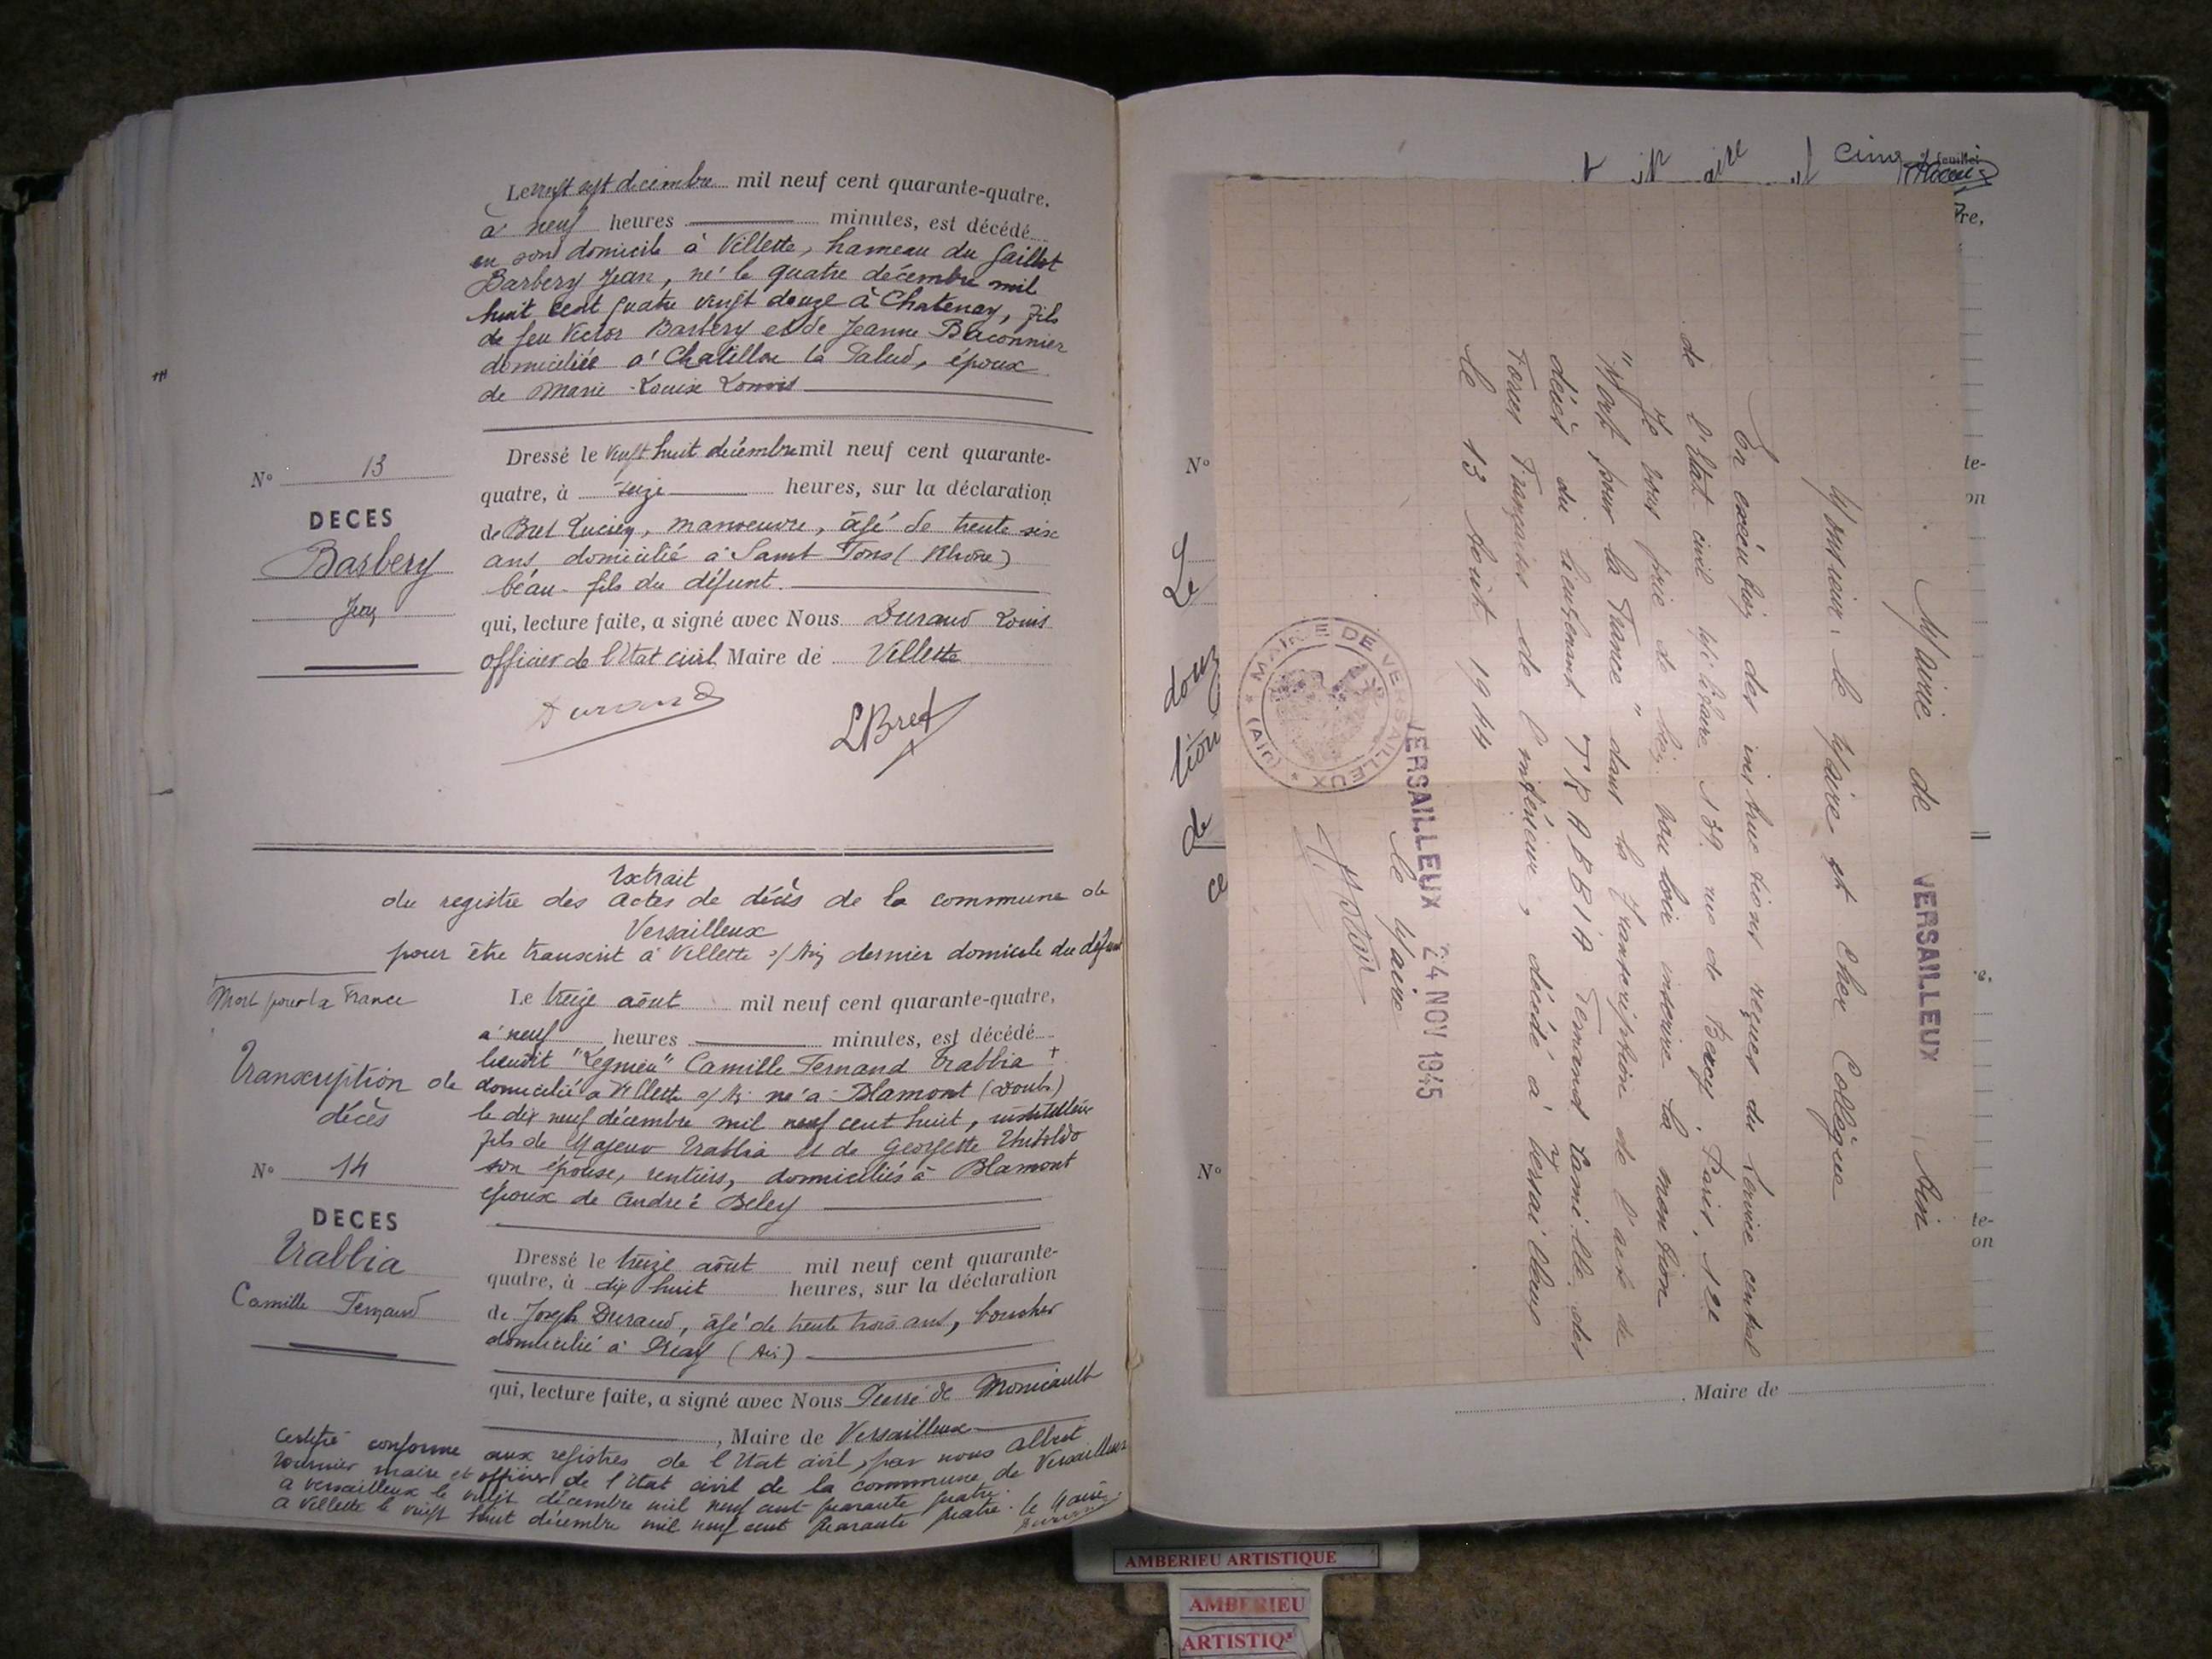 Le vingt sept décembre mil neuf cent quarante-quatre,
à neuf heures minutes, est décédé
en son domicile à Villette, hameau du Gaillot
Barbery Jean, né le quatre décembre mil
huit cent quatre vingt douze à Chatenay, fils
de feu Victor Barbery et de Jeanne Baconnier
domiciliée à Chatillon la Palud, époux
de Marie-Louise
N° 13
DECES
Barbery
Jean
Dressé le vingt huit décembre mil neuf cent quarante-
quatre, à seize heures, sur la déclaration
de Bret Lucien, manoeuvre, âgé de trente six
ans domicilié à Saint Fons (Rhône)
beau-fils du défunt.
qui, lecture faite, a signé avec Nous Durand Louis
officier de l'Etat civil Maire de Villette
Durand
LBret
Extrait
du registre des actes de décès de la commune de
Versailleux
pour être transcrit à Villette s/Ain dernier domicile du défunt
Mort pour la France
Transcription de
décès
N° 14
DECES
Trabbia
Camille Fernand
Le treize août mil neuf cent quarante-quatre,
à neuf heures minutes, est décédé
lieudit "Legnieu" Camille Fernand Trabbia +
domicilié à Villette s/A. né à Blamont (Doubs)
le dix neuf décembre mil neuf cent huit, instituteur
fils de Trabbia et de Georgette
son épouse, rentiers, domiciliés à Blamont
époux de Andrée Beley
Dressé le treize août mil neuf cent quarante-
quatre, à dix huit heures, sur la déclaration
de Joseph Durand, âgé de trente trois ans, boucher
domicilié à (Ain)
qui, lecture faite, a signé avec Nous Pierre de Monicault
, Maire de Versailleux
Certifié conforme aux registres de l'Etat civil, par nous Albert
Tournier maire et officier de l'état civil de la commune de Versailleux
à Versailleux le vingt décembre mil neuf cent quarante quatre.
A Villette le vingt huit décembre mil neuf cent quarante quatre. Le Maire
Durand
cinq
feuillet
tre,
N°
te-
on
Le
douz
tion
de
ce
N°
te-
on
Maire de
Mairie de VERSAILLEUX Ain
Monsieur le Maire et Cher Collègue
En exécution des instructions reçues du Service central
de l'Etat civil militaire 139 rue de Bercy, Paris, 12e
Je vous prie de bien vouloir inscrire la mention
"Mort pour la France" dans la transcription de l'acte de
décès du lieutenant TRABBIA Fernand Camille des
Forces Françaises de l'intérieur, décédé à Versailleux
le 13 Août 1944
VERSAILLEUX 24 NOV 1945
Le Maire
MAIRIE DE VERSAILLEUX * (Ain) *
AMBERIEU ARTISTIQUE
AMBERIEU
ARTISTIQ